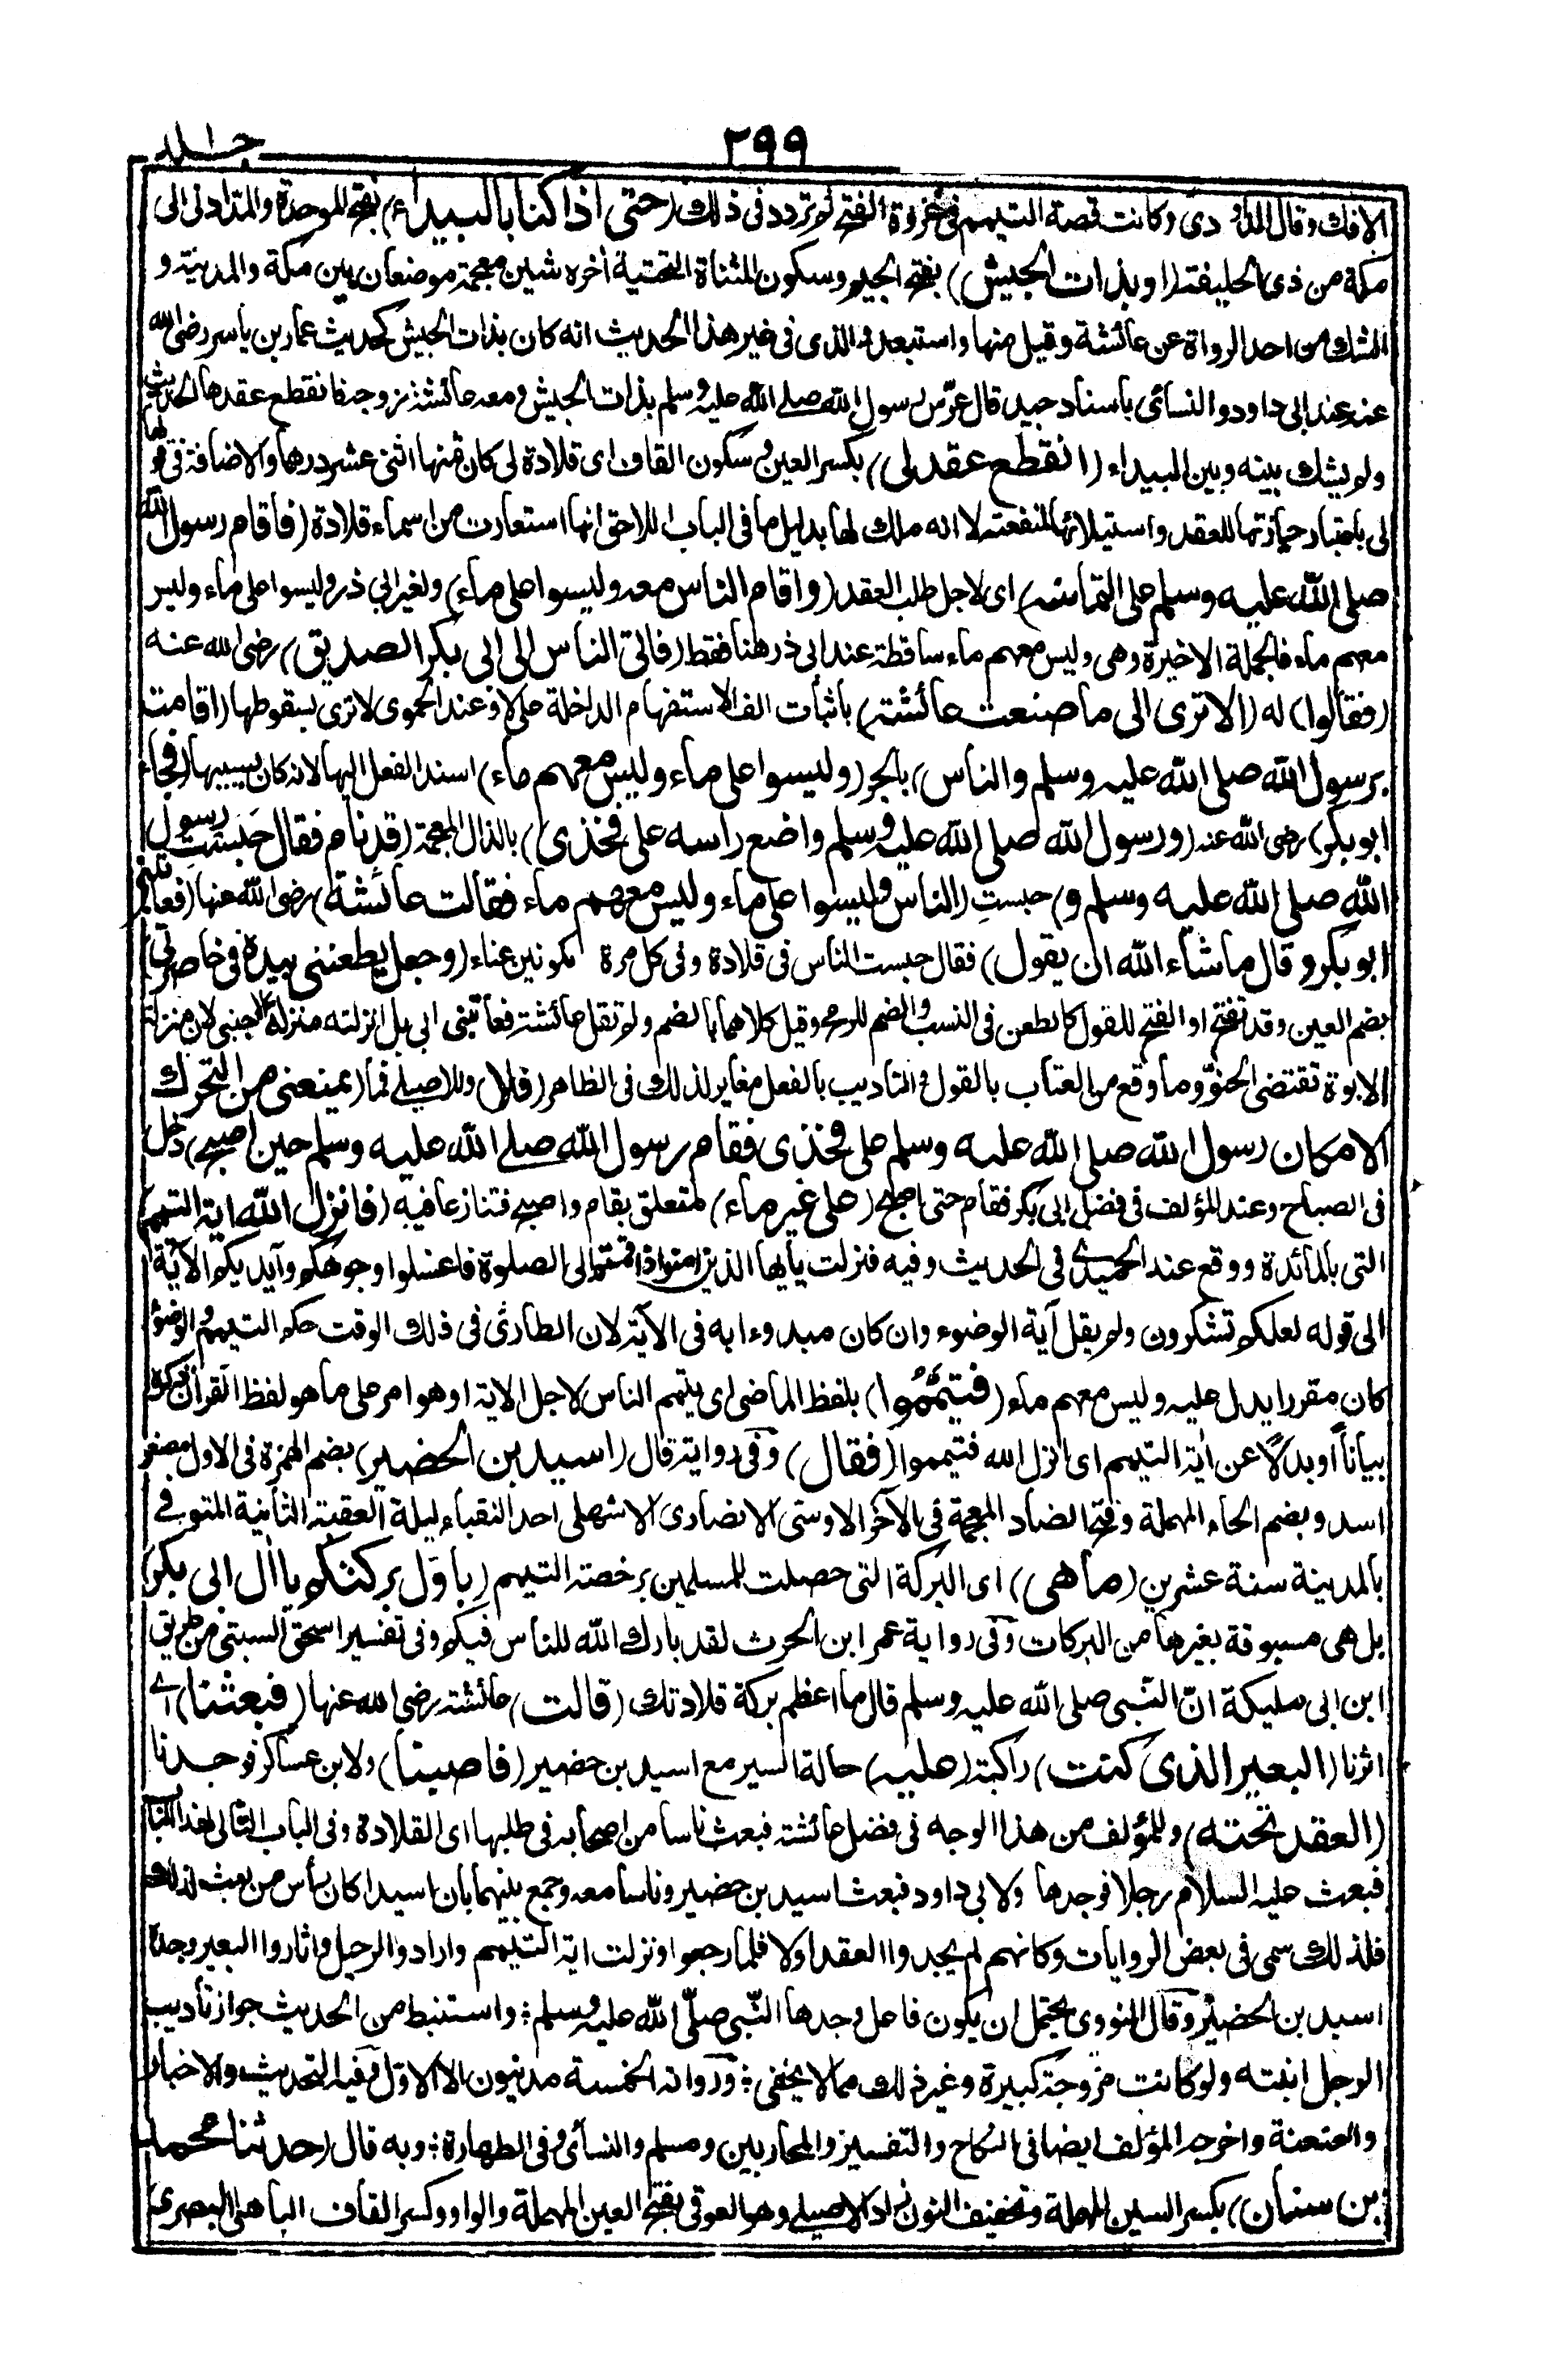 ٢٩٩
جلد
الافك وقال الداودى وكانت قصة التيمم فى غزوة الفتح ثم تردد فى ذلك (حتى اذا كنا بالبيداء) بفتح الموحدة والمد ادنى الى
مكة من ذى الحليفة (او بذات الجيش) بفتح الجيم وسكون المثناة التحتية اخره شين معجمة موضعان بين مكة والمدينة و
الشك من احد الرواة عن عائشة وقيل منها واستبعد والذى فى غير هذا الحديث انه كان بذات الجيش كحديث عمار بن ياسر رضى الله
عنه عند ابى داود والنسائى باسناد جيد قال عرّس رسول الله صلى الله عليه وسلم بذات الجيش ومعه عائشة زوجته فانقطع عقدها الحديث
ولم يشك بينه وبين البيداء (انقطع عقد لى) بكسر العين وسكون القاف اى قلادة لى كان ثمنها اثنى عشر درهما والاضافة فى قولها
لى باعتبار حيازتها للعقد واستيلائها لمنفعته لا انه ملك لها بدليل ما فى الباب اللاحق انها استعارت من اسماء قلادة (فاقام رسول الله
صلى الله عليه وسلم على التماسه) اى لاجل طلب العقد (واقام الناس معه وليسوا على ماء) ولغير ابى ذر وليسوا على ماء وليس
معهم ماء فالجملة الاخيرة وهى وليس معهم ماء ساقطة عند ابى ذر هنا فقط (فاتى الناس الى ابى بكر الصديق) رضى الله عنه
(فقالوا) له (الا ترى الى ما صنعت عائشة) باثبات الف الاستفهام الداخلة على لا وعند الحموى لا ترى بسقوطها (اقامت
برسول الله صلى الله عليه وسلم والناس) بالجر (وليسوا على ماء وليس معهم ماء) اسند الفعل اليها لانه كان بسببها (فجاء
ابو بكر) رضى الله عنه (ورسول الله صلى الله عليه وسلم واضع راسه على فخذى) بالذال المعجمة (قد نام فقال حبست رسول
الله صلى الله عليه وسلم و) حبست (الناس وليسوا على ماء وليس معهم ماء فقالت عائشة) رضى الله عنها (فعاتبنى
ابو بكر وقال ما شاء الله ان يقول) فقال حبست الناس فى قلادة وفى كل مرة تكونين عناء (وجعل يطعننى بيده فى خاصرتى)
بضم العين وقد تفتح او الفتح للقول كالطعن فى النسب والضم للرمح وقيل كلاهما بالضم ولم تقل عائشة فعاتبنى ابى بل انزلته منزلة الاجنبى لان منزلة
الابوة تقتضى الحنو وما وقع من العتاب بالقول والتاديب بالفعل مغاير لذلك فى الظاهر (فلا) وللاصيلى فما (يمنعنى من التحرك
الا مكان رسول الله صلى الله عليه وسلم على فخذى فقام رسول الله صلى الله عليه وسلم حين اصبح) دخل
فى الصباح وعند المؤلف فى فضل ابى بكر فقام حتى اصبح (على غير ماء) متعلق بقام واصبح فتنازعا فيه (فانزل الله اية التيمم)
التى بالمائدة ووقع عند الحميدى فى الحديث وفيه فنزلت يايها الذين امنوا اذا قمتم الى الصلوة فاغسلوا وجوهكم وايديكم الآية
الى قوله لعلكم تشكرون ولم يقل آية الوضوء وان كان مبدوءا به فى الآية لان الطارئ فى ذلك الوقت حكم التيمم والوضوء
كان مقررا يدل عليه وليس معهم ماء (فتيمموا) بلفظ الماضى اى تيمم الناس لاجل الاية او هو امر على ما هو لفظ القرآن ذكره
بيانا او بدلا عن اية التيمم اى انزل الله فتيمموا (فقال) وفى رواية قال (اسيد بن الحضير) بضم الهمزة فى الاول مصغر
اسد وبضم الحاء المهملة وفتح الضاد المعجمة فى الآخر الاوسى الانصارى الاشهلى احد النقباء ليلة العقبة الثانية المتوفى
بالمدينة سنة عشرين (ما هى) اى البركة التى حصلت للمسلمين برخصة التيمم (باول بركتكم يا ال ابى بكر)
بل هى مسبوقة بغيرها من البركات وفى رواية عمر ابن الحرث لقد بارك الله للناس فيكم وفى تفسير اسحق السبتى من طريق
ابن ابى مليكة ان النبى صلى الله عليه وسلم قال ما اعظم بركة قلادتك (قالت) عائشة رضى الله عنها (فبعثنا) اى
اثرنا (البعير الذى كنت) راكبة (عليه) حالة السير مع اسيد بن حضير (فاصبنا) ولابن عساكر فوجدنا
(العقد تحته) وللمؤلف من هذا الوجه فى فضل عائشة فبعث ناسا من اصحابه فى طلبها اى القلادة وفى الباب التالى لهذا الباب
فبعث عليه السلام رجلا فوجدها ولابى داود فبعث اسيد بن حضير وناسا معه وجمع بينهما بان اسيدا كان رأس من بعث لذلك
فلذلك سمى فى بعض الروايات وكانهم لم يجدوا العقد اولا فلما رجعوا ونزلت اية التيمم وارادوا الرحيل واثاروا البعير وجده
اسيد بن الحضير وقال النووى يحتمل ان يكون فاعل وجدها النبى صلى الله عليه وسلم؛ واستنبط من الحديث جواز تأديب
الرجل ابنته ولو كانت مزوجة كبيرة وغير ذلك مما لا يخفى؛ ورواته الخمسة مدنيون الا الاول وفيه التحديث والاخبار
والعنعنة واخرجه المؤلف ايضا فى النكاح والتفسير والمحاربين ومسلم والنسائى فى الطهارة؛ وبه قال (حدثنا محمد
بن سنان) بكسر السين المهملة وتخفيف النون زاد الاصيلى وهو العوقى بفتح العين المهملة والواو وكسر القاف الباهلى البصرى